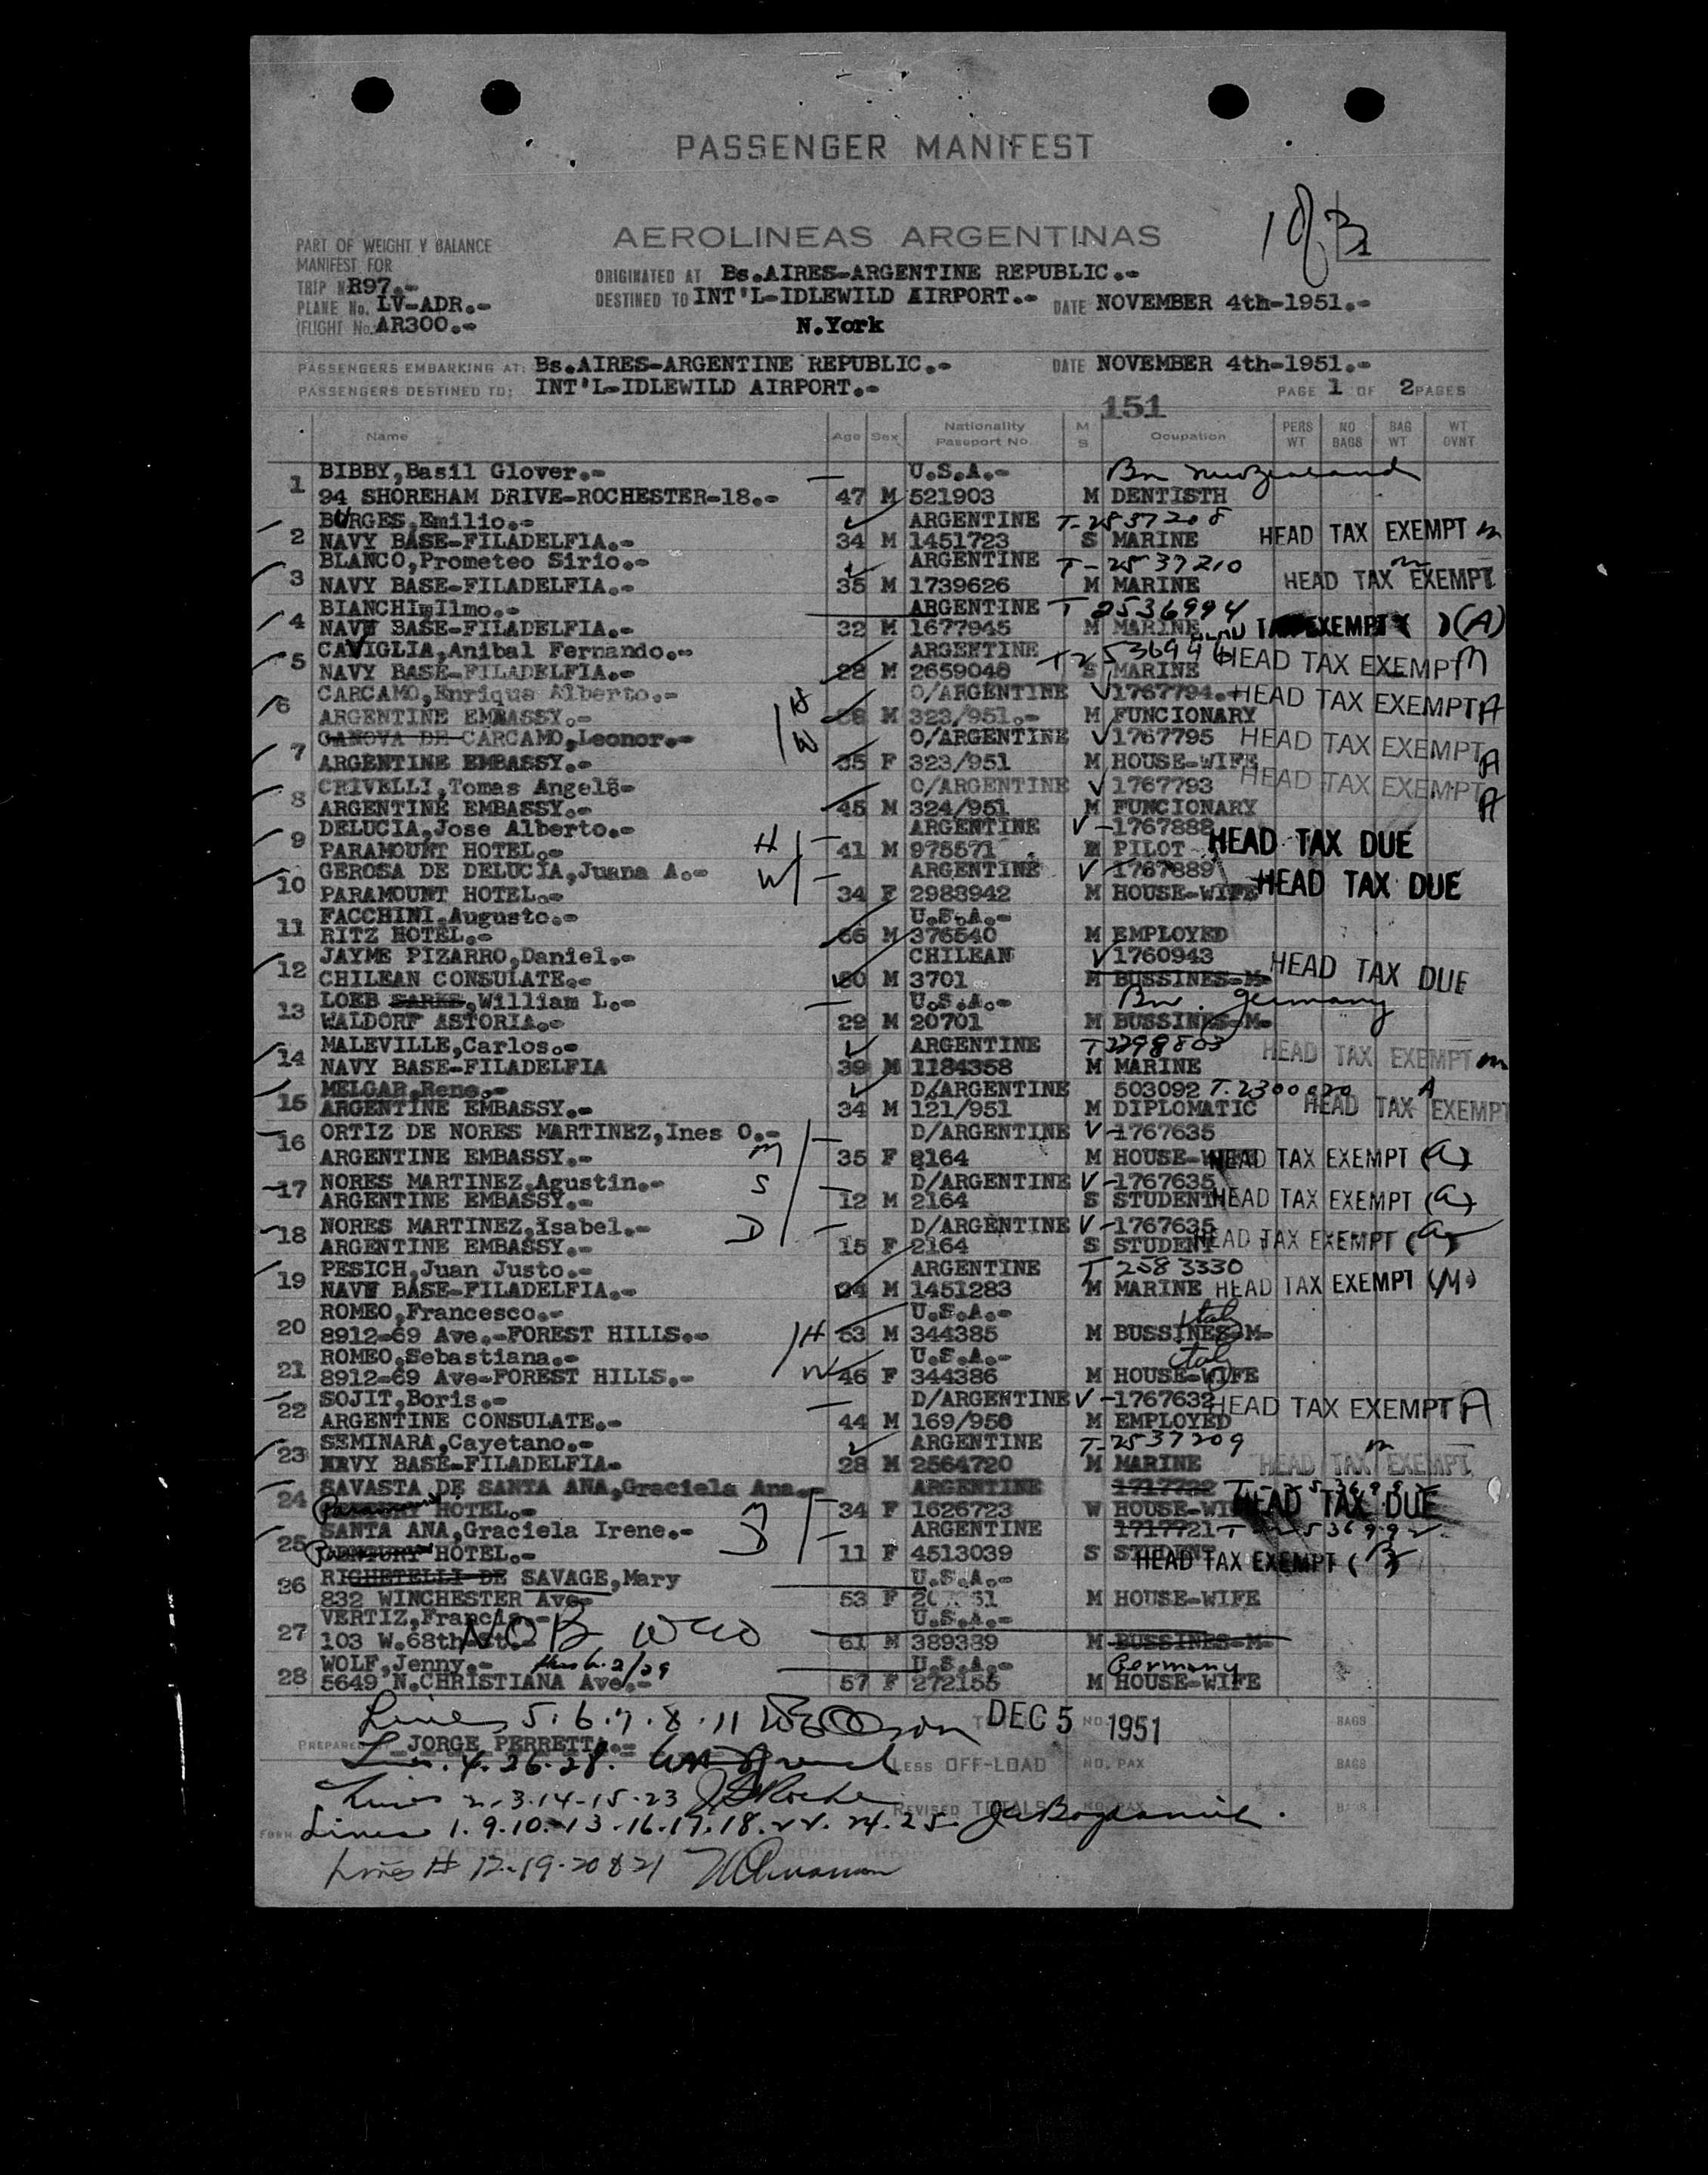 PASSENGER MANIFEST
AEROLINEAS ARGENTINAS
PART OF WEIGHT Y BALANCE
MANIFEST FOR
TRIP N R97.-
PLANE No. LV-ADR.-
(FLIGHT No. AR300.-
ORIGINATED AT Bs.AIRES-ARGENTINE REPUBLIC.-
DESTINED TO INT'L-IDLEWILD AIRPORT.- DATE NOVEMBER 4th-1951.-
N.York
PASSENGERS EMBARKING AT: Bs.AIRES-ARGENTINE REPUBLIC.- DATE NOVEMBER 4th-1951.-
PASSENGERS DESTINED TO: INT'L-IDLEWILD AIRPORT.- PAGE 1 OF 2 PAGES
151
Name Age Sex Nationality Passport No. M S Ocupation PERS WT NO BAGS BAG WT WT OVNT
1 BIBBY,Basil Glover.- U.S.A.- Bn New Zealand
94 SHOREHAM DRIVE-ROCHESTER-18.- 47 M 521903 M DENTISTH
2 BURGES,Emilio.- ARGENTINE T-2537208
NAVY BASE-FILADELFIA.- 34 M 1451723 S MARINE HEAD TAX EXEMPT m
3 BLANCO,Prometeo Sirio.- ARGENTINE T-2537210
NAVY BASE-FILADELFIA.- 35 M 1739626 M MARINE HEAD TAX EXEMPT m
4 BIANCHI,Ilmo.- ARGENTINE T 2536994
NAVY BASE-FILADELFIA.- 32 M 1677945 M MARINE HEAD TAX EXEMPT (A)
5 CAVIGLIA,Anibal Fernando.- ARGENTINE
NAVY BASE-FILADELFIA.- 28 M 2659048 S MARINE HEAD TAX EXEMPT M
6 CARCAMO,Enrique Alberto.- H O/ARGENTINE V 1767794.- HEAD TAX EXEMPT A
ARGENTINE EMBASSY.- M 323/951.- M FUNCIONARY
7 CANOVA DE CARCAMO,Leonor.- W O/ARGENTINE V 1767795 HEAD TAX EXEMPT A
ARGENTINE EMBASSY.- 35 F 323/951 M HOUSE-WIFE
8 CRIVELLI,Tomas Angel.- O/ARGENTINE V 1767793 HEAD TAX EXEMPT A
ARGENTINE EMBASSY.- 45 M 324/951 M FUNCIONARY
9 DELUCIA,Jose Alberto.- H ARGENTINE V-1767888
PARAMOUNT HOTEL.- 41 M 975571 M PILOT HEAD TAX DUE
10 GEROSA DE DELUCIA,Juana A.- W ARGENTINE V 1767889
PARAMOUNT HOTEL.- 34 F 2983942 M HOUSE-WIFE HEAD TAX DUE
11 FACCHINI,Augusto.- U.S.A.-
RITZ HOTEL.- 66 M 376540 M EMPLOYED
12 JAYME PIZARRO,Daniel.- CHILEAN V 1760943 HEAD TAX DUE
CHILEAN CONSULATE.- M 3701 M BUSSINES-M-
13 LOEB SARKE,William L.- U.S.A.- Bn. Germany
WALDORF ASTORIA.- 29 M 20701 M BUSSINES-M-
14 MALEVILLE,Carlos.- ARGENTINE T2298803 HEAD TAX EXEMPT m
NAVY BASE-FILADELFIA 39 M 1184358 M MARINE
15 MELGAR,Rene.- D/ARGENTINE 503092 A
ARGENTINE EMBASSY.- 34 M 121/951 M DIPLOMATIC HEAD TAX EXEMPT
16 ORTIZ DE NORES MARTINEZ,Ines O.- M D/ARGENTINE V-1767635
ARGENTINE EMBASSY.- 35 F 2164 M HOUSE-WIFE HEAD TAX EXEMPT (a)
17 NORES MARTINEZ,Agustin.- S D/ARGENTINE V-1767635
ARGENTINE EMBASSY.- 12 M 2164 S STUDENT HEAD TAX EXEMPT (a)
18 NORES MARTINEZ,Isabel.- D D/ARGENTINE V-1767635
ARGENTINE EMBASSY.- 15 F 2164 S STUDENT HEAD TAX EXEMPT (a)
19 PESICH,Juan Justo.- ARGENTINE T 2583330
NAVY BASE-FILADELFIA.- M 1451283 M MARINE HEAD TAX EXEMPT (M)
20 ROMEO,Francesco.- U.S.A.- Italy
8912-69 Ave.-FOREST HILLS.- H 53 M 344385 M BUSSINES-M-
21 ROMEO,Sebastiana.- U.S.A.- Italy
8912-69 Ave-FOREST HILLS.- W 46 F 344386 M HOUSE-WIFE
22 SOJIT,Boris.- D/ARGENTINE V-1767632 HEAD TAX EXEMPT A
ARGENTINE CONSULATE.- 44 M 169/950 M EMPLOYED
23 SEMINARA,Cayetano.- ARGENTINE T-2537209 m
NAVY BASE-FILADELFIA- 28 M 2564720 M MARINE HEAD TAX EXEMPT
24 SAVASTA DE SANTA ANA,Graciela Ana.- ARGENTINE 1717722
Paramount HOTEL.- M 34 F 1626723 W HOUSE-WIFE HEAD TAX DUE
25 SANTA ANA,Graciela Irene.- ARGENTINE 1717721 T-2536992
HOTEL.- D 11 F 4513039 S STUDENT HEAD TAX EXEMPT (B)
26 RIGHETELLI DE SAVAGE,Mary U.S.A.-
832 WINCHESTER Ave- 53 F M HOUSE-WIFE
27 VERTIZ,Francis.- U.S.A.-
103 W.68th-St.- NOB 61 M 389389 M BUSSINES-M-
28 WOLF,Jenny.- U.S.A.- Germany
5649 N.CHRISTIANA Ave.- 57 F 272155 M HOUSE-WIFE
Lines 5.6.7.8.11 DEC 5 1951 NO. BAGS
PREPARED BY JORGE PERRETTA.-
4.26.28. LESS OFF-LOAD NO. PAX BAGS
Lines 2.3.14-15-23 REVISED TOTALS NO. PAX BAGS
Lines 1.9.10.-13.16.17.18.22.24.25.
Lines # 12-19-20 & 21